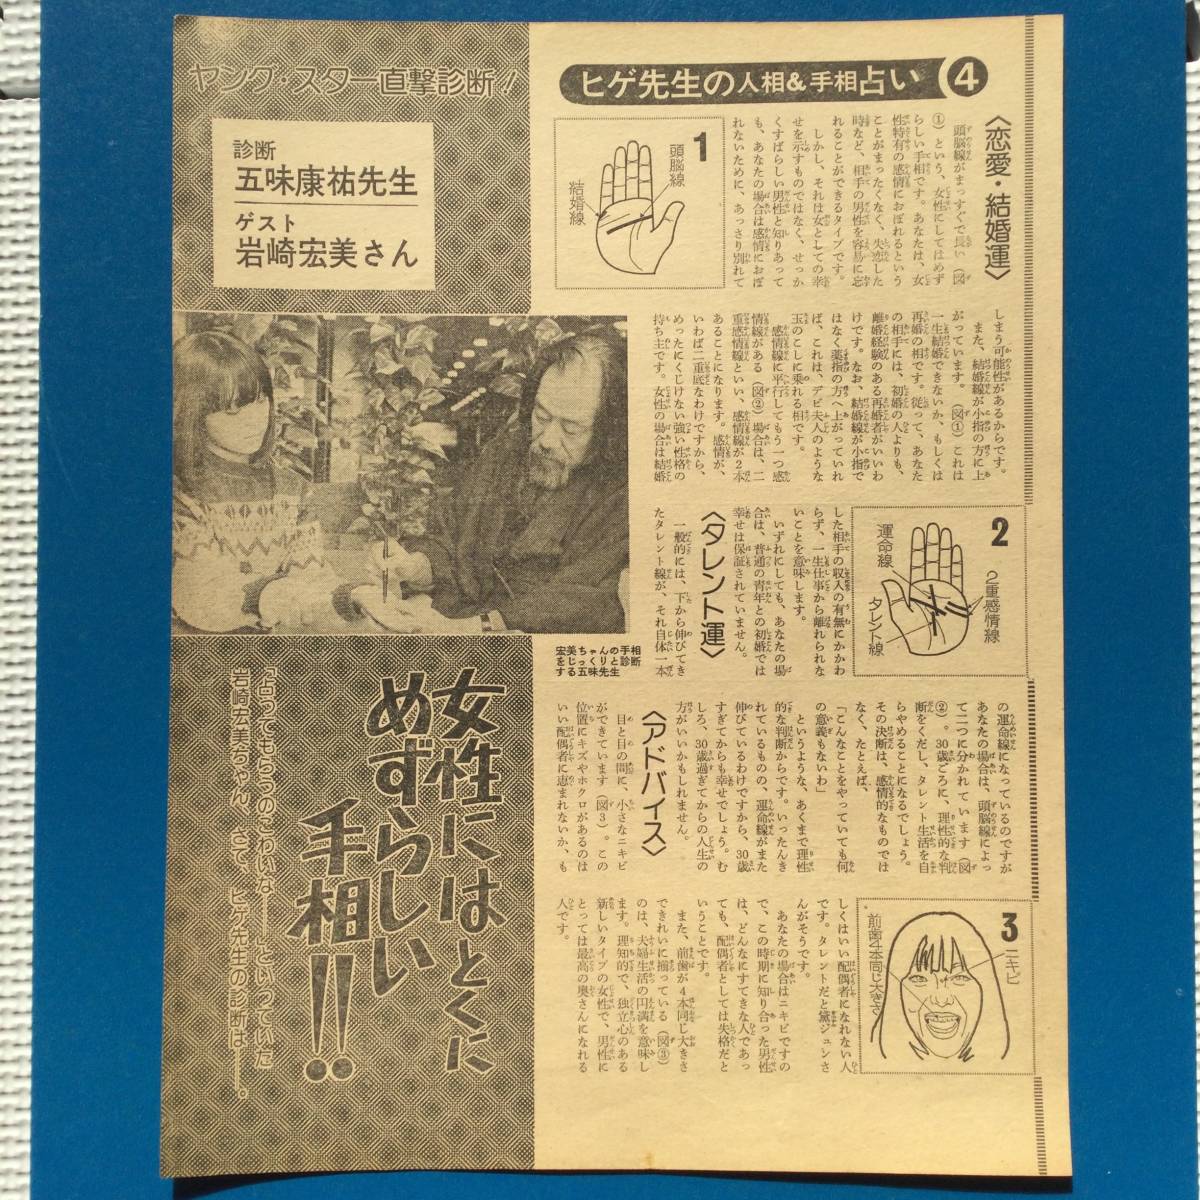 ヒゲ先生の人相&手相占い 4
ヤング・スター直撃診断!
診断
五味康祐先生
ゲスト
岩崎宏美さん
〈恋愛・結婚運〉
頭脳線がまっすぐで長い(図
①)という、女性にしてはめず
らしい手相です。あなたは、女
性特有の感情におぼれるという
ことがまったくなく、失恋した
時など、相手の男性を容易に忘
れることができるタイプです。
しかし、それは女としての幸
せを示すものではなく、せっか
くすばらしい男性と知りあって
も、あなたの場合は感情におぼ
れないために、あっさり別れて
1
頭脳線
結婚線
しまう可能性があるからです。
また、結婚線が小指の方に上
がっています。(図①)これは
一生結婚できないか、もしくは
再婚の相です。従って、あなた
の相手には、初婚の人よりも、
離婚経験のある再婚者がいいわ
けです。なお、結婚線が小指で
はなく薬指の方へ上がっていれ
ば、これは、デビ夫人のような
玉のこしに乗れる相です。
感情線に平行してもう一つ感
情線がある(図②)場合は、二
重感情線といい、感情線が2本
あることになります。感情が、
いわば二重底なわけですから、
めったにくじけない強い性格の
持ち主です。女性の場合は結婚
2
2重感情線
運命線
タレント線
した相手の収入の有無にかかわ
らず、一生仕事から離れられな
いことを意味します。
いずれにしても、あなたの場
合は、普通の青年との初婚では
幸せは保証されていません。
〈タレント運〉
一般的には、下から伸びてき
たタレント線が、それ自体一本
宏美ちゃんの手相
をじっくりと診断
する五味先生
の運命線になっているのですが
あなたの場合は、頭脳線によっ
て二つに分かれています(図
②)。30歳ごろに、理性的な判
断をくだし、タレント生活を自
らやめることになるでしょう。
その決断は、感情的なものでは
なく、たとえば、
「こんなことをやっていても何
の意義もないわ」
というような、あくまで理性
的な判断からです。いったんき
れているものの、運命線がまた
伸びているわけですから、30歳
すぎてからも幸せでしょう。む
しろ、30歳過ぎてからの人生の
方がいいかもしれません。
〈アドバイス〉
目と目の間に、小さなニキビ
ができています(図3)。この
位置にキズやホクロがあるのは
いい配偶者に恵まれないか、も
3
ニキビ
前歯4本同じ大きさ
しくはいい配偶者になれない人
です。タレントだと黛ジュンさ
んがそうです。
あなたの場合はニキビですの
で、この時期に知り合った男性
は、どんなにすてきな人であっ
ても、配偶者としては失格だと
いうことです。
また、前歯が4本同じ大きさ
できれいに揃っている(図③)
のは、夫婦生活の円満を意味し
ます。理知的で、独立心のある
新しいタイプの女性で、男性に
とっては最高の奥さんになれる
人です。
女性にはとくに
めずらしい
手相!!
「占ってもらうのこわいな——」といっていた
岩崎宏美ちゃん。さて、ヒゲ先生の診断は——。